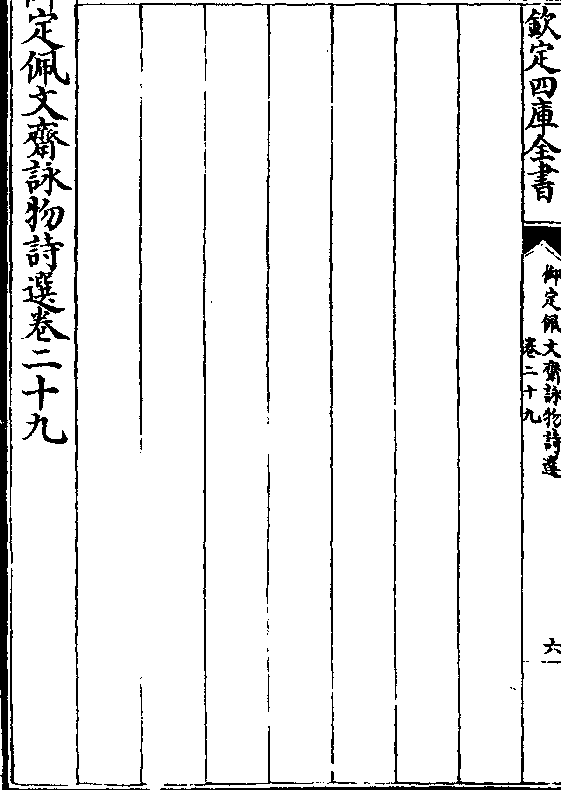 欽定四庫全書
御定佩文齋詠物詩選
卷二十九
六
御定佩文齋詠物詩選卷二十九